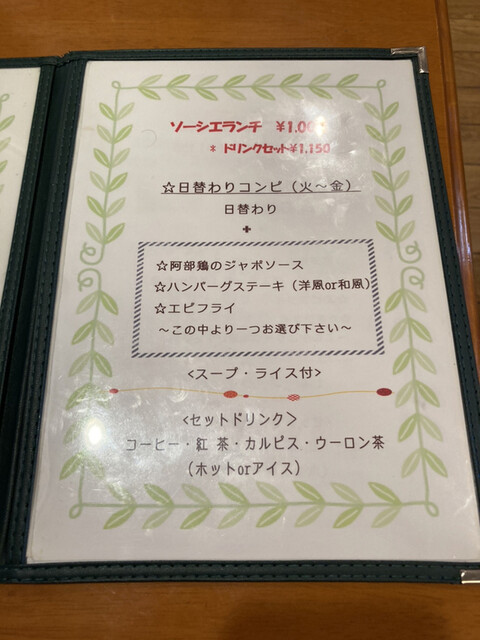 ソーシエランチ ¥1.00
* ドリンクセット¥1,150
☆日替わりコンビ（火～金）
日替わり
+
☆阿部鶏のジャポソース
☆ハンバーグステーキ（洋風or和風）
☆エビフライ
～この中より一つお選び下さい～
<スープ・ライス付>
<セットドリンク>
コーヒー・紅 茶・カルピス・ウーロン茶
（ホットorアイス）